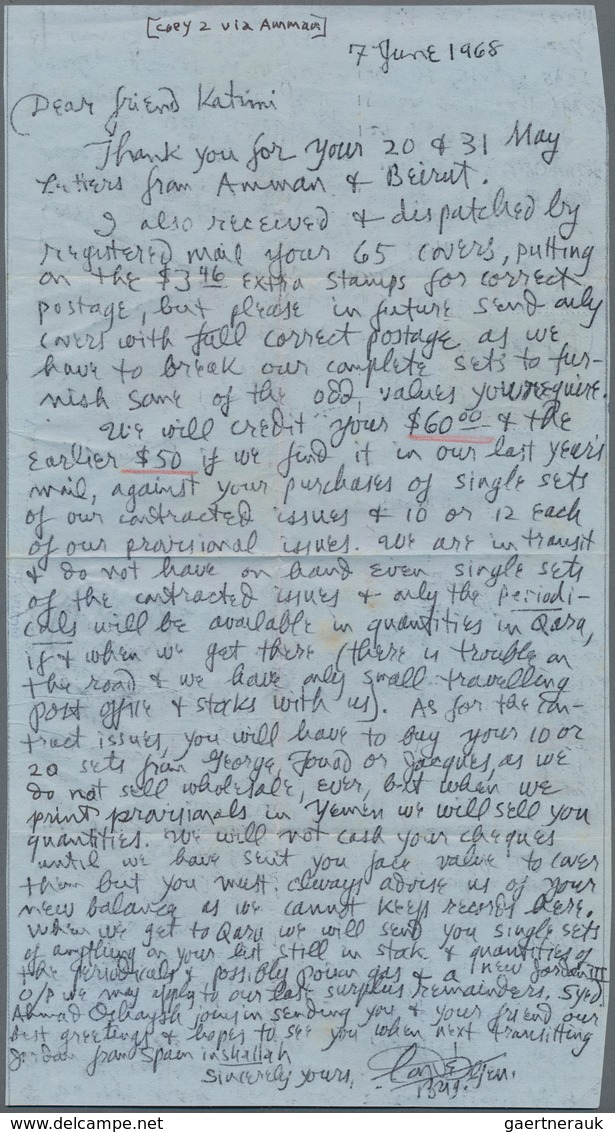 [copy 2 via Amman]
7 June 1968
Dear friend Katimi
Thank you for your 20 & 31 May
letters from Amman & Beirut.
I also received & dispatched by
registered mail your 65 covers, putting
on the $3.46 extra stamps for correct
postage, but please in future send only
covers with full correct postage as we
have to break our complete sets to fur-
nish some of the odd values you require.
We will credit your $60.00 & the
earlier $50 if we find it in our last year's
mail, against your purchases of single sets
of our contracted issues & 10 or 12 each
of our provisional issues. We are in transit
& do not have on hand even single sets
of the contracted issues & only the periodi-
cals will be available in quantities in Qara,
if & when we get there (there is trouble on
the road & we have only small travelling
post office & stocks with us). As for the con-
tract issues, you will have to buy your 10 or
20 sets from George, Fouad or Jacques, as we
do not sell wholesale, ever, but when we
print provisionals in Yemen we will sell you
quantities. We will not cash your cheques
until we have sent you face value to cover
them but you must always advise us of your
new balance as we cannot keep records here.
When we get to Qara we will send you single sets
of anything on your list still in stock & quantities of
the periodicals & possibly poison gas & a new Jordan III
o/p we may apply to our last surplus remainders. Syed
Ahmad joins in sending you & your friend our
best greetings & hopes to see you when next transitting
Jordan from Spain inshallah
Sincerely yours,
gaertnerauk
delcampe.net